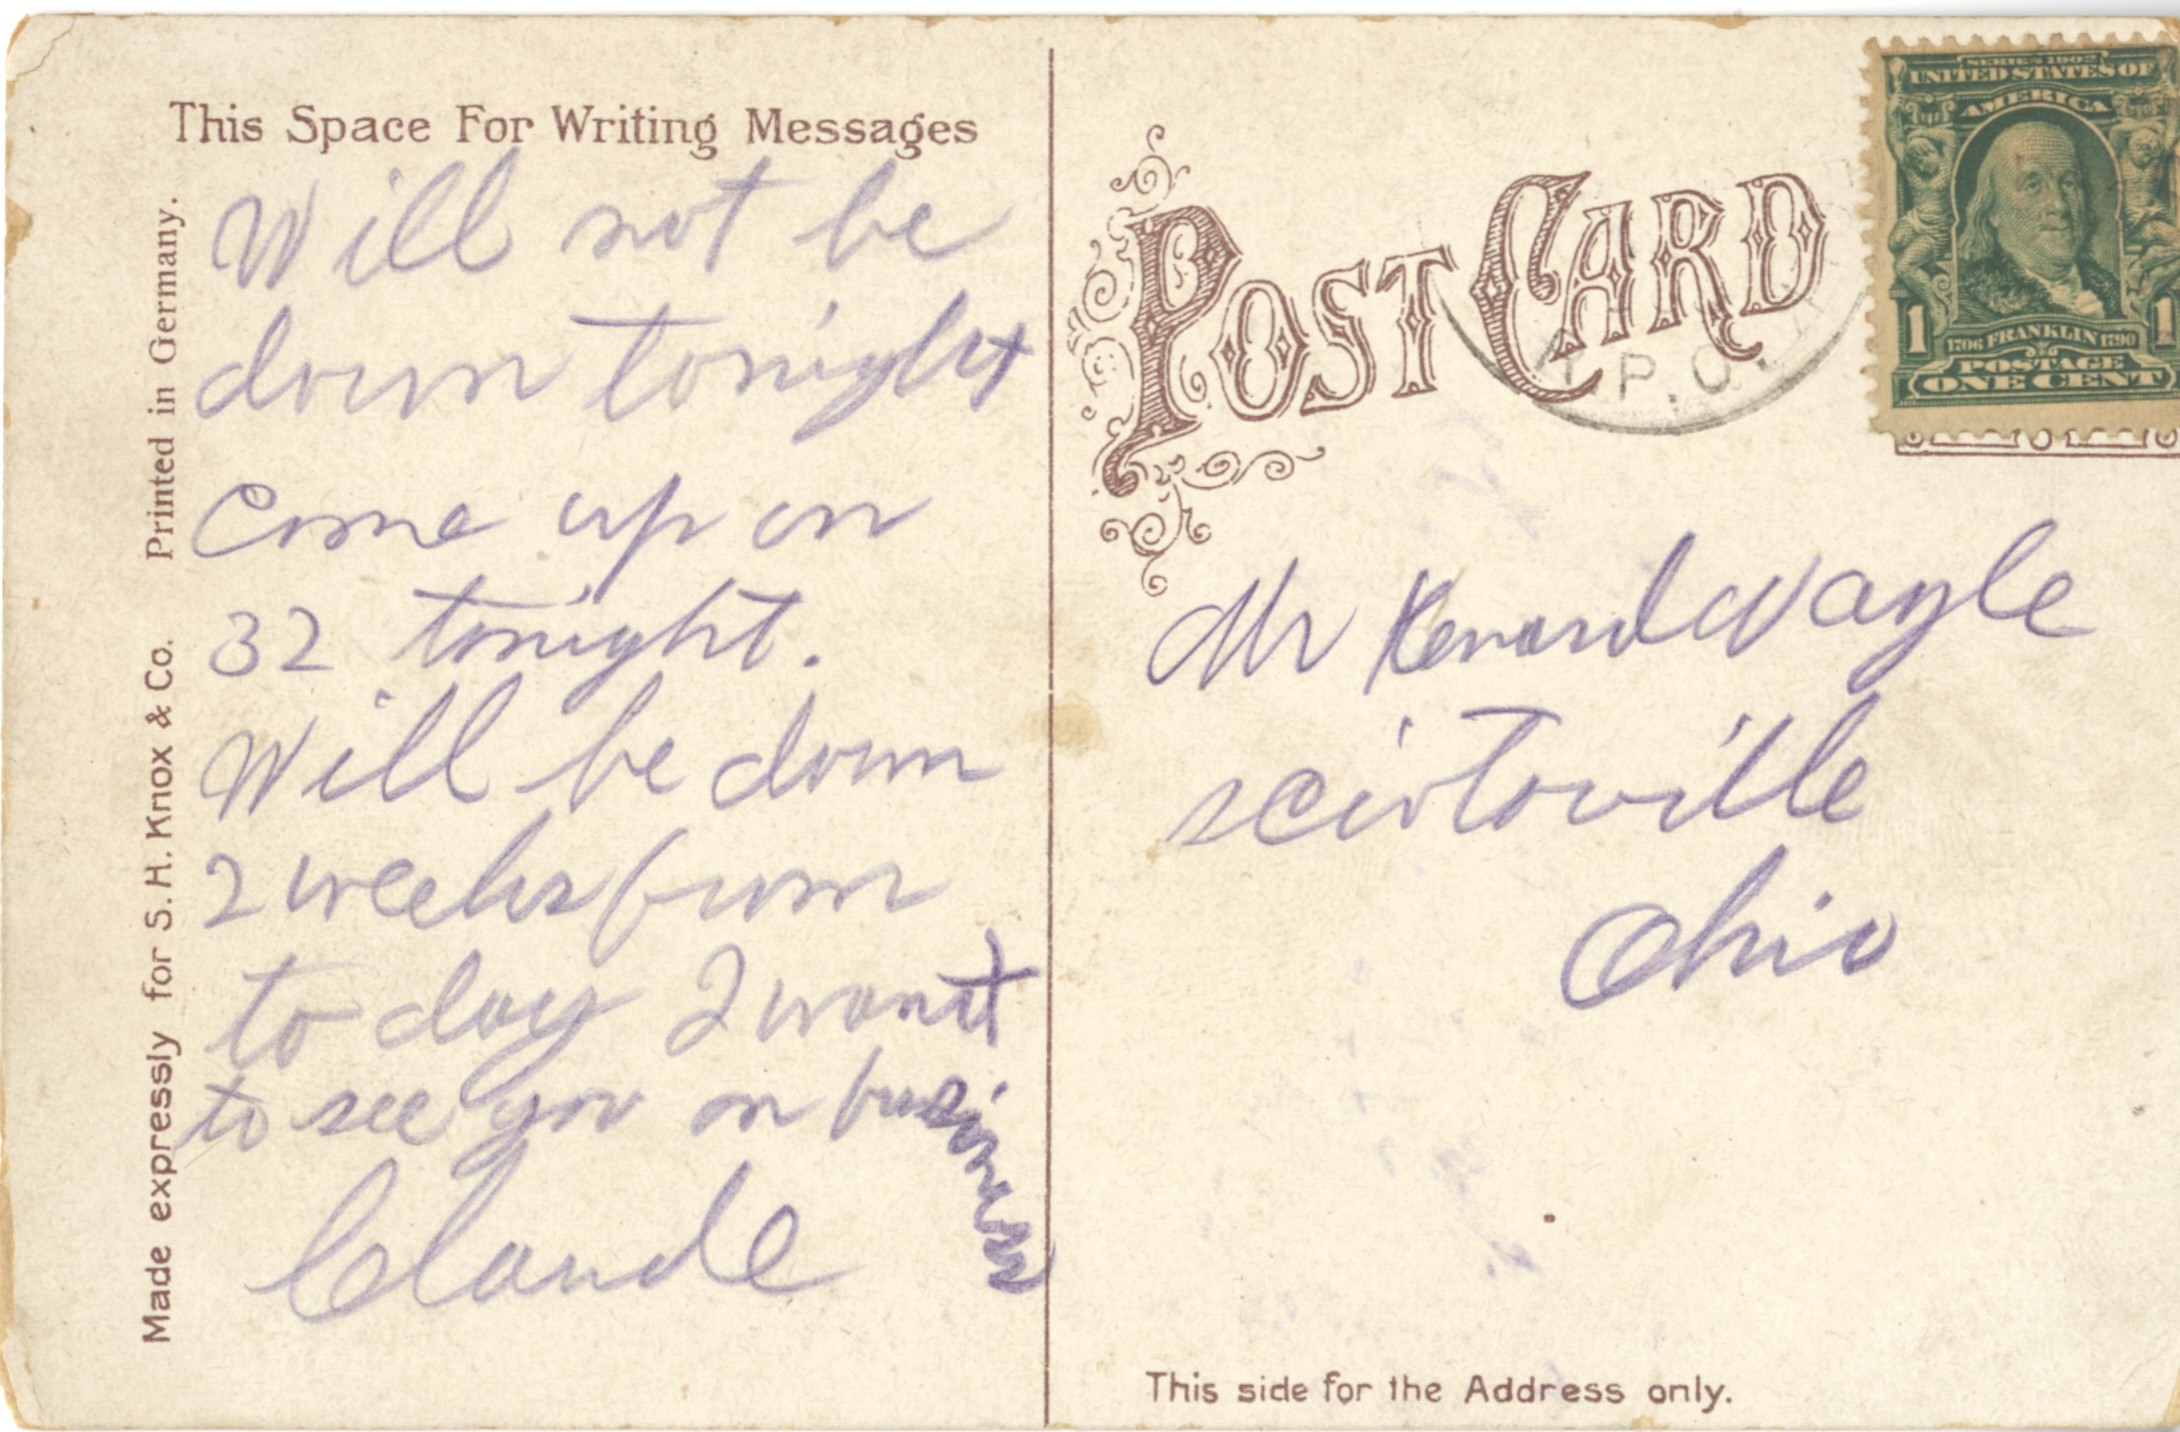 This Space For Writing Messages
Will not be
down tonight
Come up on
32 tonight.
Will be down
2 weeks from
to day I want
to see you on business
Claude
Made expressly for S. H. Knox & Co. Printed in Germany.
POST CARD
P.O.
SERIES 1902
UNITED STATES OF
AMERICA
1 1
1706 FRANKLIN 1790
POSTAGE
ONE CENT
Mr Kenard Wayle
Sciotoville
Ohio
This side for the Address only.